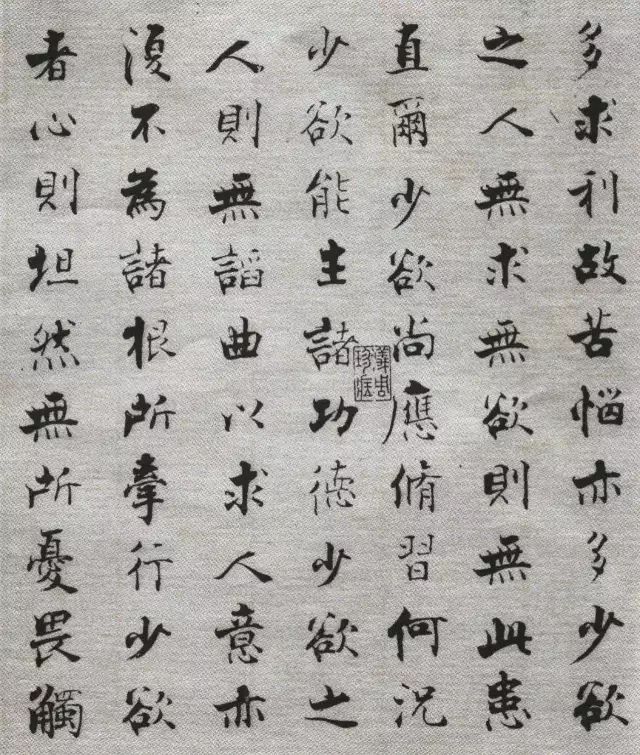 多求利故苦惱亦多少欲
之人無求無欲則無此患
直爾少欲尚應脩習何況
少欲能生諸功德少欲之
人則無謟曲以求人意亦
復不為諸根所牽行少欲
者心則坦然無所憂畏觸